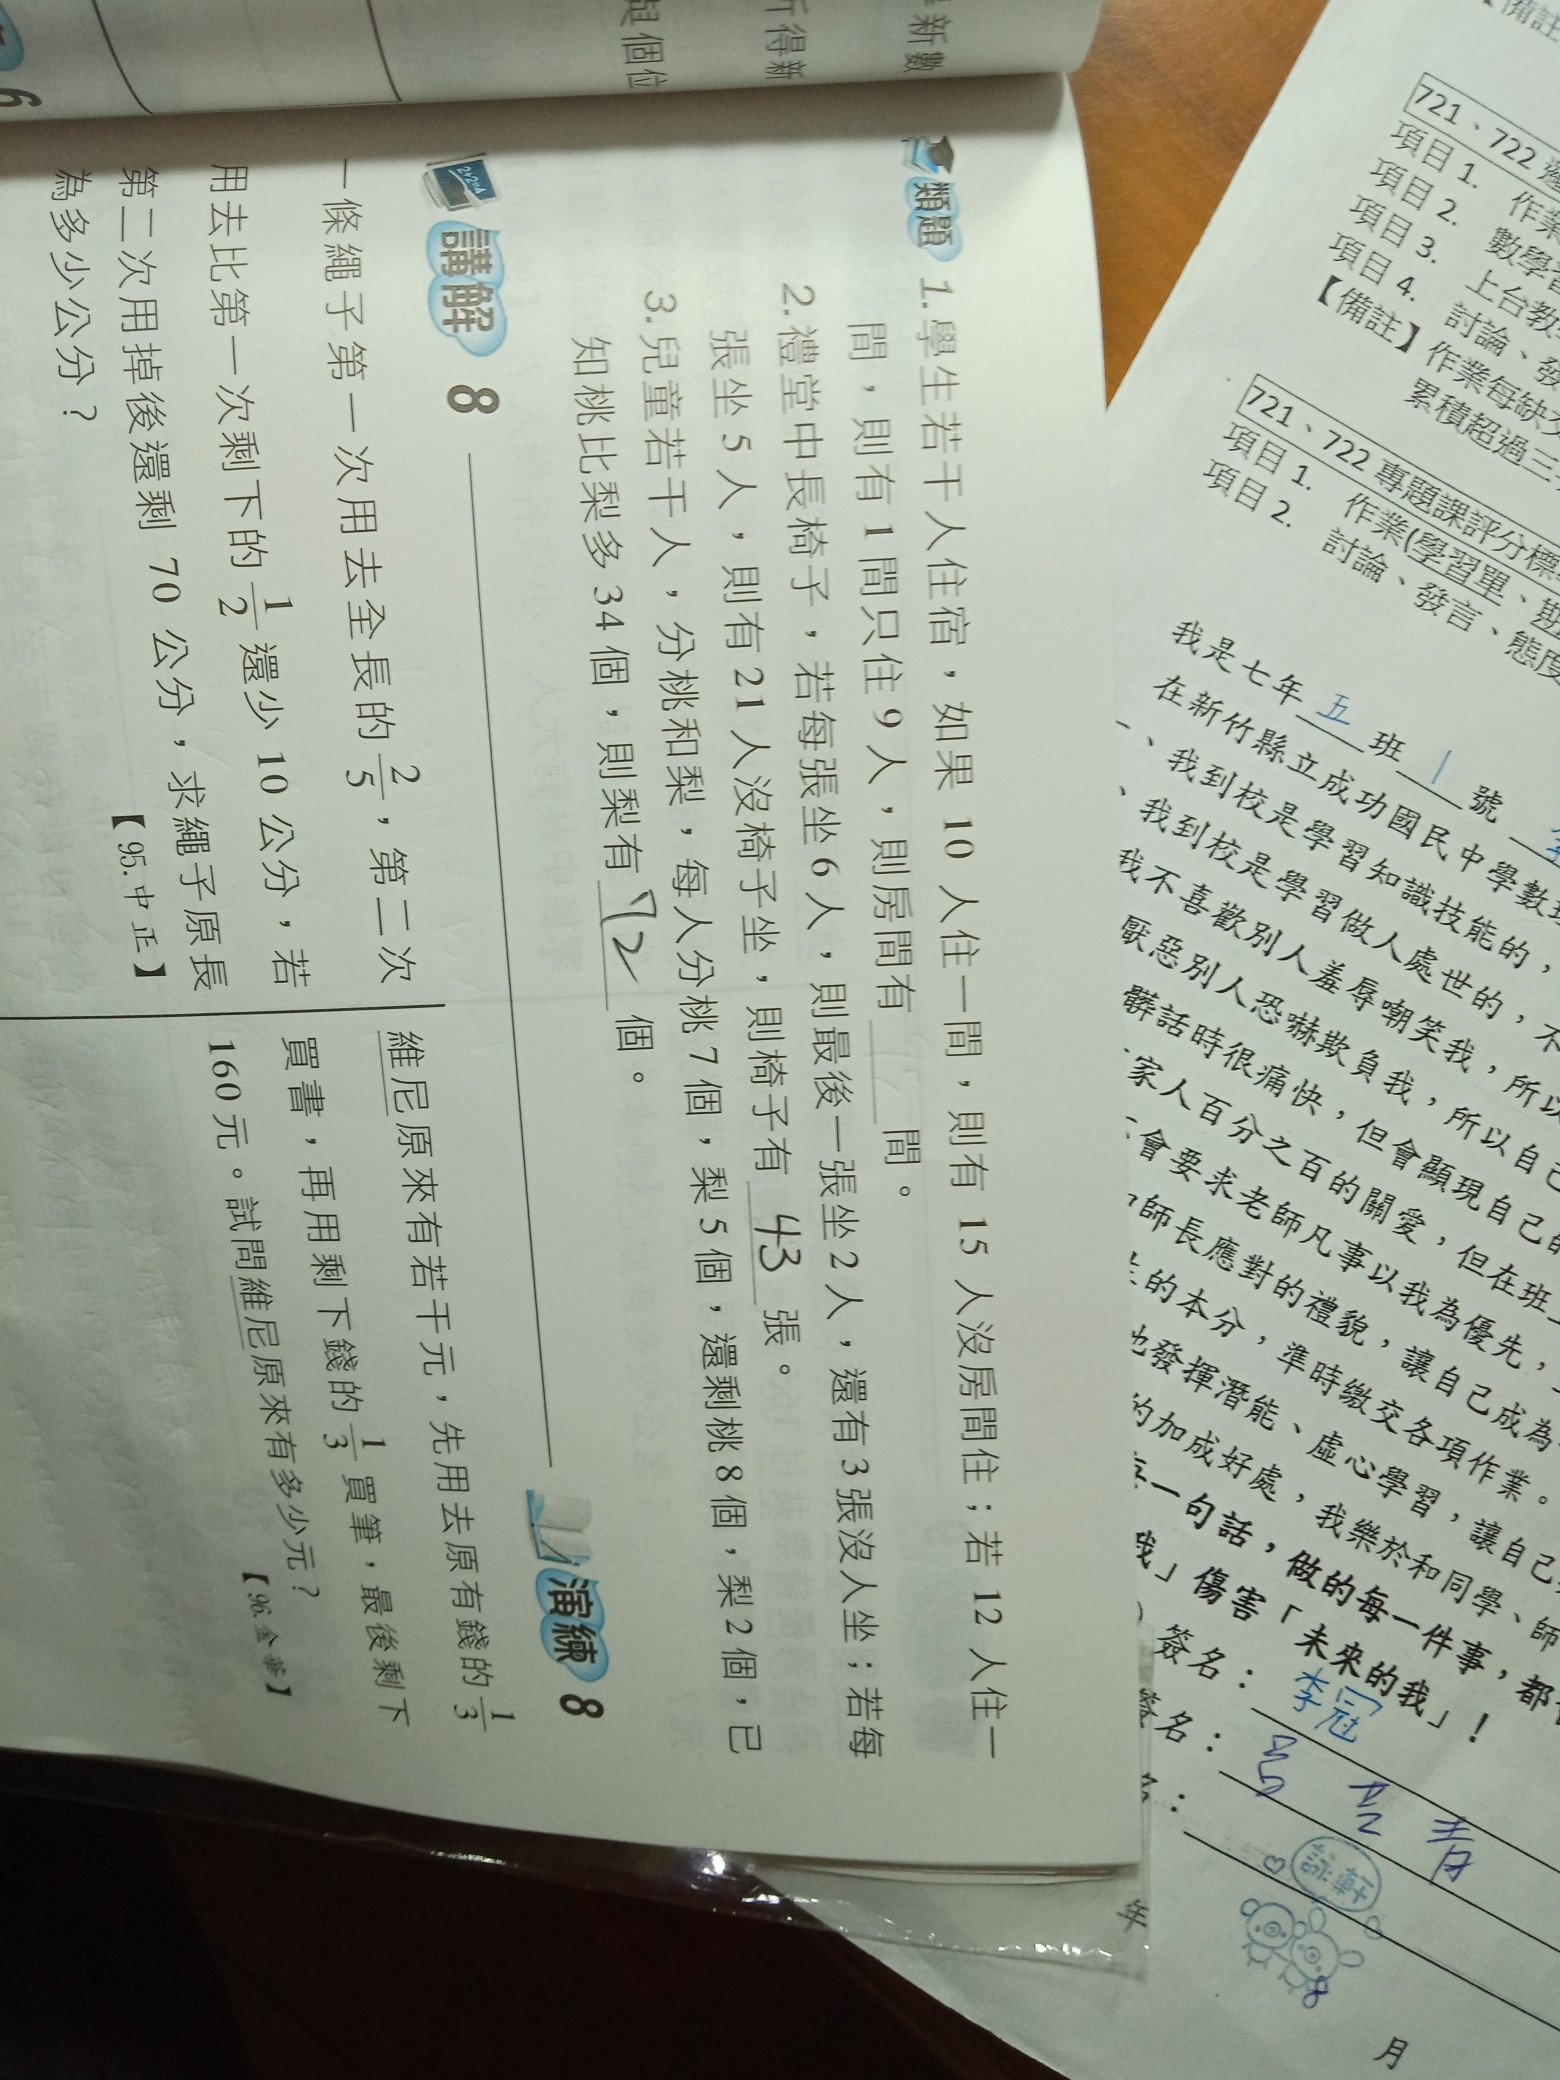 新數
行得新
與個位
6
類題
1.學生若干人住宿，如果 10 人住一間，則有 15 人沒房間住；若 12 人住一
間，則有 1 間只住 9 人，則房間有 間。
2.禮堂中長椅子，若每張坐 6 人，則最後一張坐 2 人，還有 3 張沒人坐；若每
張坐 5 人，則有 21 人沒椅子坐，則椅子有 43 張。
3.兒童若干人，分桃和梨，每人分桃 7 個，梨 5 個，還剩桃 8 個，梨 2 個，已
知桃比梨多 34 個，則梨有 72 個。
講解 8
一條繩子第一次用去全長的 2/5，第二次
用去比第一次剩下的 1/2 還少 10 公分，若
第二次用掉後還剩 70 公分，求繩子原長
為多少公分？
【95.中正】
演練 8
維尼原來有若干元，先用去原有錢的 1/3
買書，再用剩下錢的 1/3 買筆，最後剩下
160 元。試問維尼原來有多少元？
【備註
721、722
項目 1. 作業
項目 2. 數學
項目 3. 上台教
項目 4. 討論、發
【備註】作業每缺交
累積超過三
721、722 專題課評分標
項目 1. 作業(學習單、
項目 2. 討論、發言、態度
我是七年 五 班 1 號
在新竹縣立成功國民中學數
一、我到校是學習知識技能的，
、我到校是學習做人處世的，不
我不喜歡別人羞辱嘲笑我，所以
厭惡別人恐嚇欺負我，所以自己
髒話時很痛快，但會顯現自己的
家人百分之百的關愛，但在班上
會要求老師凡事以我為優先，
師長應對的禮貌，讓自己成為
的本分，準時繳交各項作業。
地發揮潛能、虛心學習，讓自己
的加成好處，我樂於和同學、師
一句話，做的每一件事，都
我」傷害「未來的我」！
簽名：李冠
名：
年
8
月